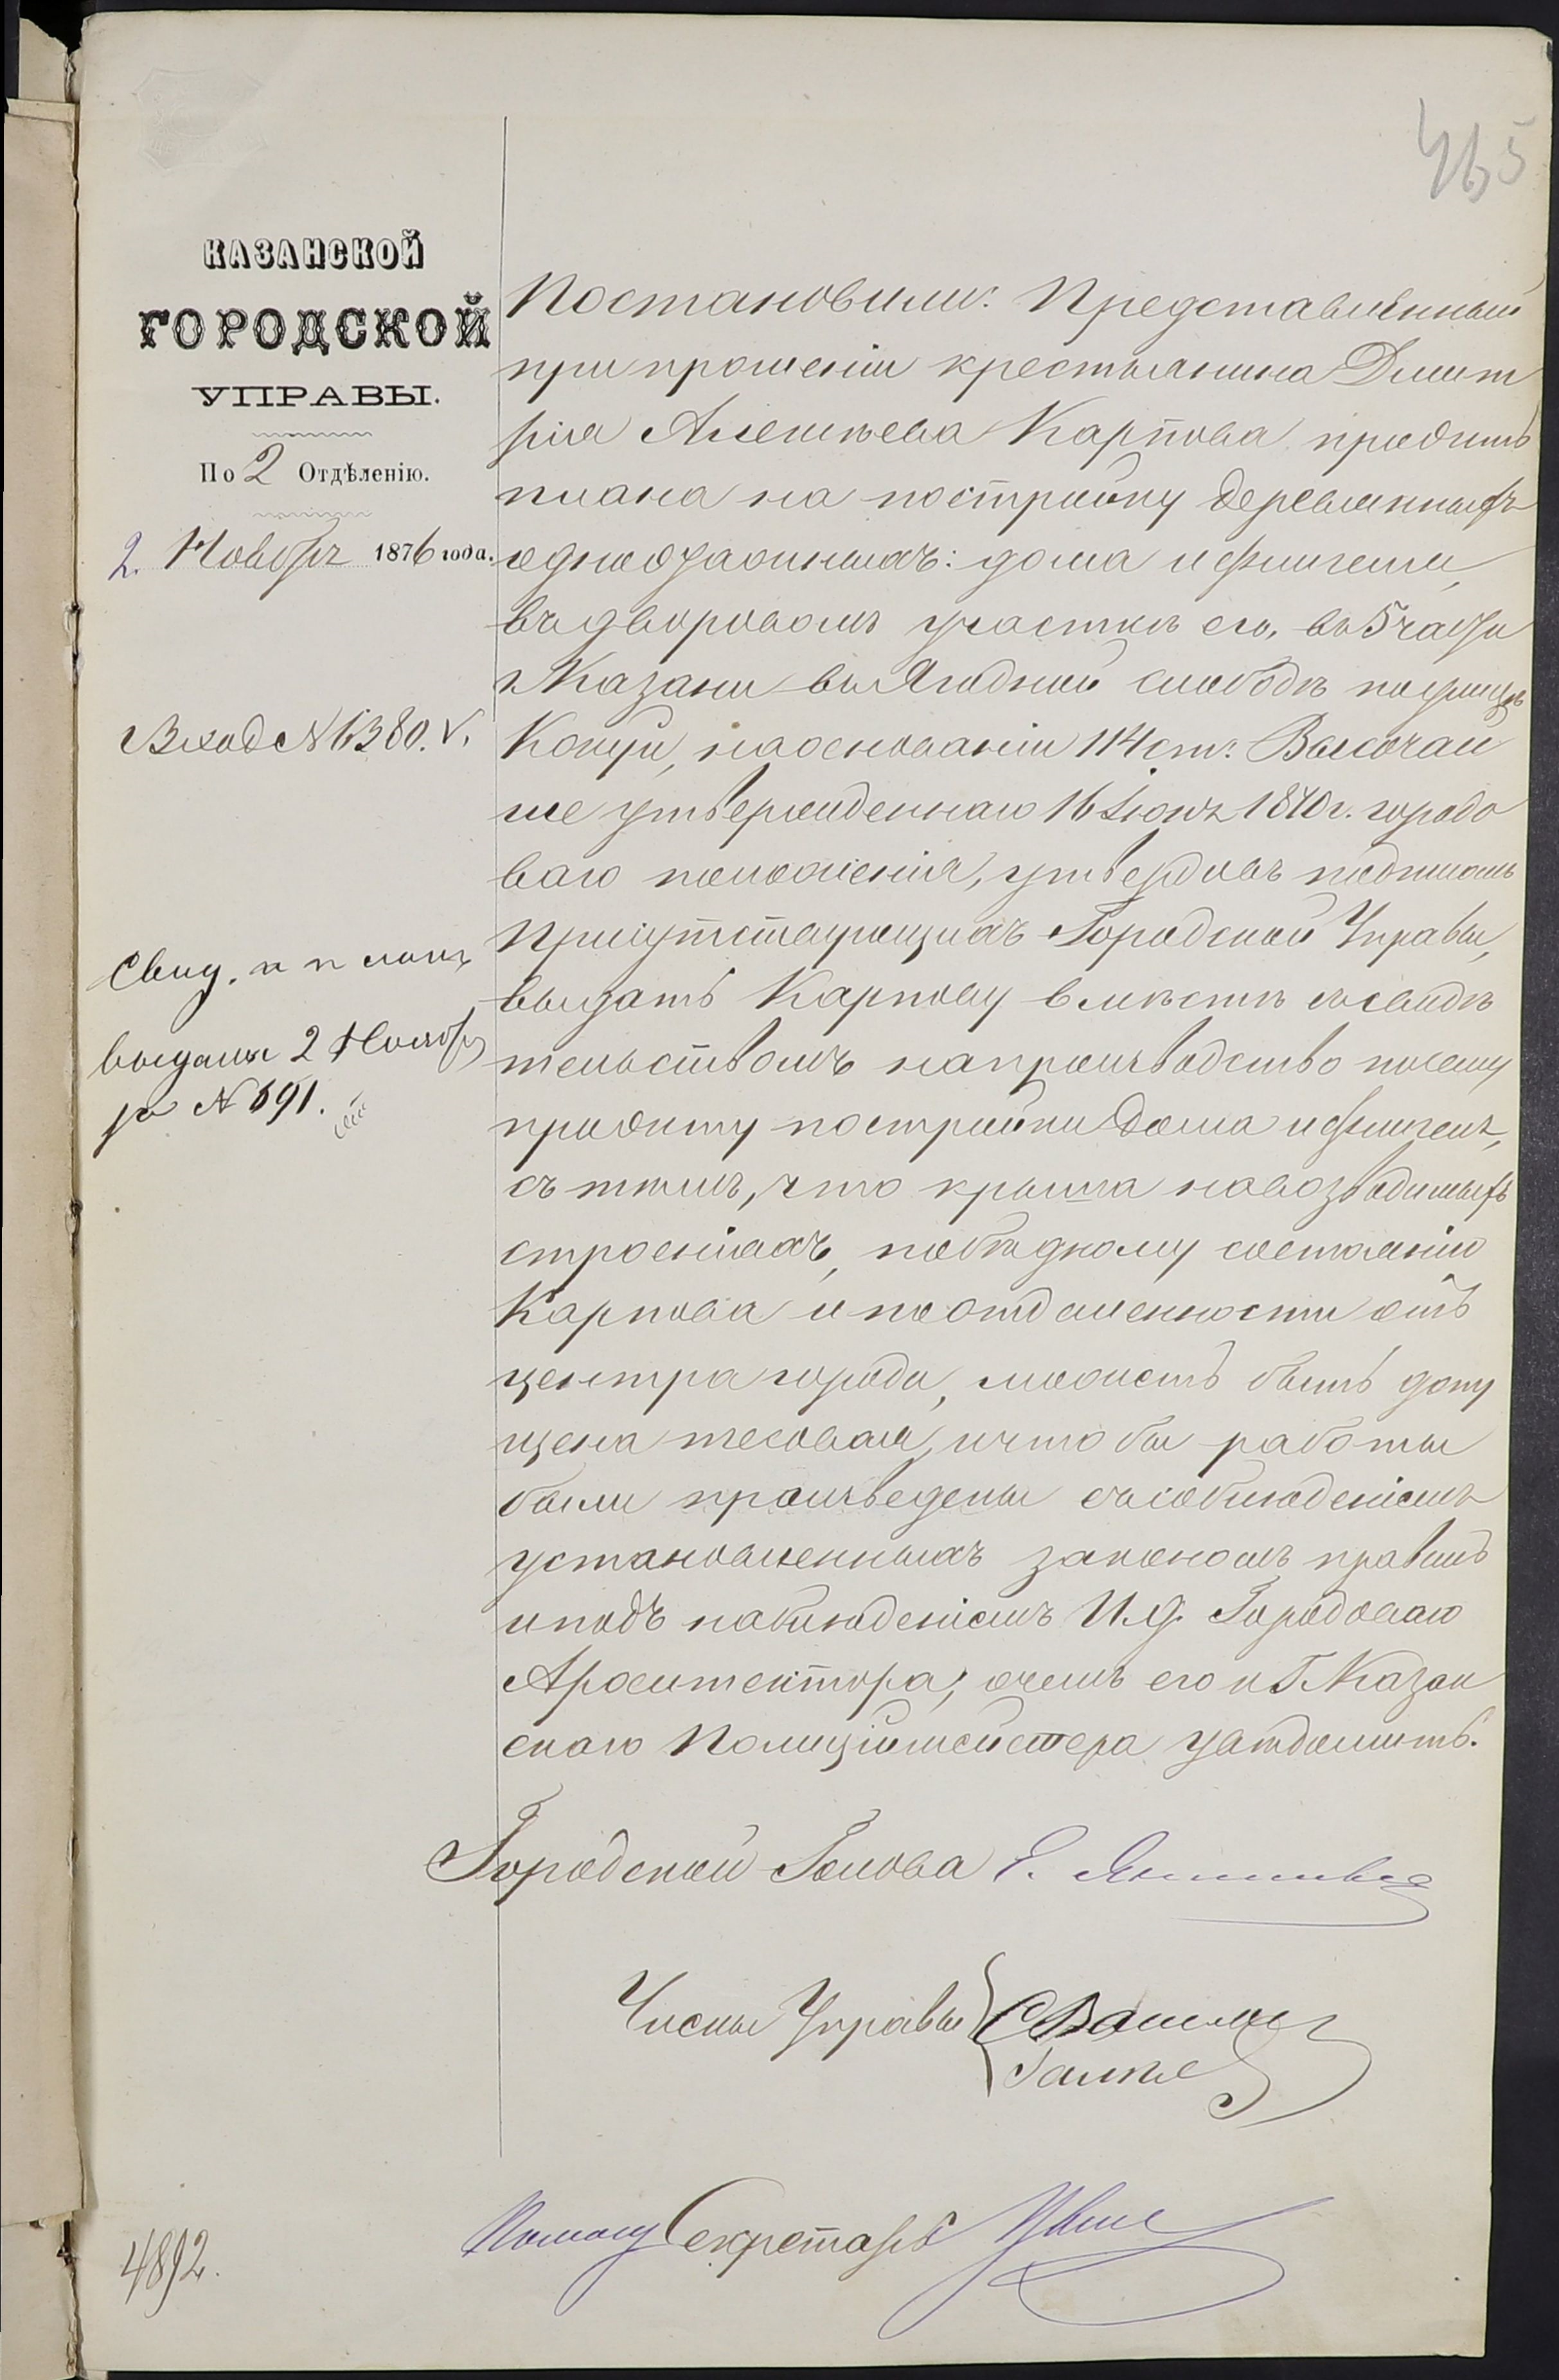 465
КАЗАНСКОЙ
ГОРОДСКОЙ
УПРАВЫ.
По 2 Отдѣленію.
2. Ноября 1876 года.
Вход № 6380.
Свид. и планъ
выданы 2 Ноября
за № 691.
Постановили: Представленный
при прошеніи крестьянина Дмит
рія Алексѣева Карпова проэктъ
плана на постройку деревянныхъ
одноэтажныхъ: дома и флигеля,
въ дворовомъ участкѣ его, въ 5 части
г. Казани въ Ягодной слободѣ по улицѣ
на основаніи 114 ст. Высочай
ше утвержденнаго 16 Іюня 1870 г. городо
ваго положенія, утвердивъ подписомъ
Присутствующихъ Городской Управы,
выдать Карпову вмѣстѣ съ свидѣ
тельствомъ на производство по сему
проэкту постройки дома и флигеля,
съ тѣмъ, что крыша на возводимыхъ
строеніяхъ, по бѣдному состоянію
Карпова и по отдаленности отъ
центра города, можетъ быть допу
щена тесовая, и что бы работы
были произведены съ соблюденіемъ
установленныхъ закономъ правилъ
и подъ наблюденіемъ И. д. Городоваго
Архитектора; о чемъ его и Г. Казан
скаго Полиціймейстера увѣдомить.
Городской Голова Э. Янишевскій
Члены Управы
Помощ Секретарь
4892.